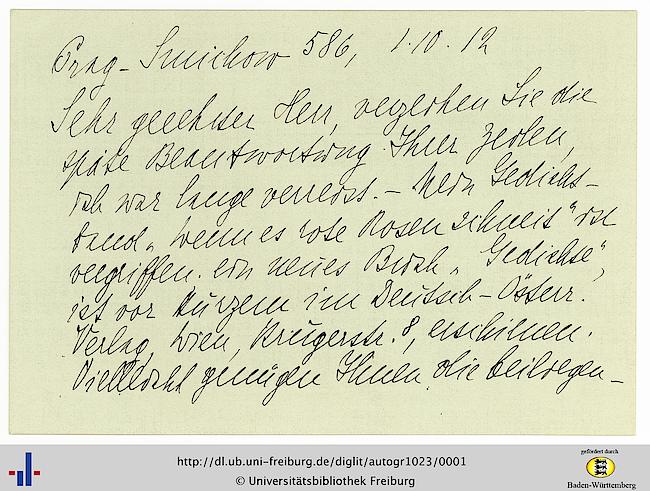 Prag-Smichow 586, 1.10.12
Sehr geehrter Herr, verzeihen Sie die
späte Beantwortung Ihrer Zeilen,
ich war lange verreist. – Mein Gedichts-
band „Wenn es rote Rosen schneit" ist
vergriffen. ein neues Buch „Gedichte",
ist vor kurzem im Deutsch-Österr.
Verlag, Wien, Krugerstr. 8, erschienen.
Vielleicht genügen Ihnen die beiliegen-
http://dl.ub.uni-freiburg.de/diglit/autogr1023/0001
© Universitätsbibliothek Freiburg
gefördert durch
Baden-Württemberg